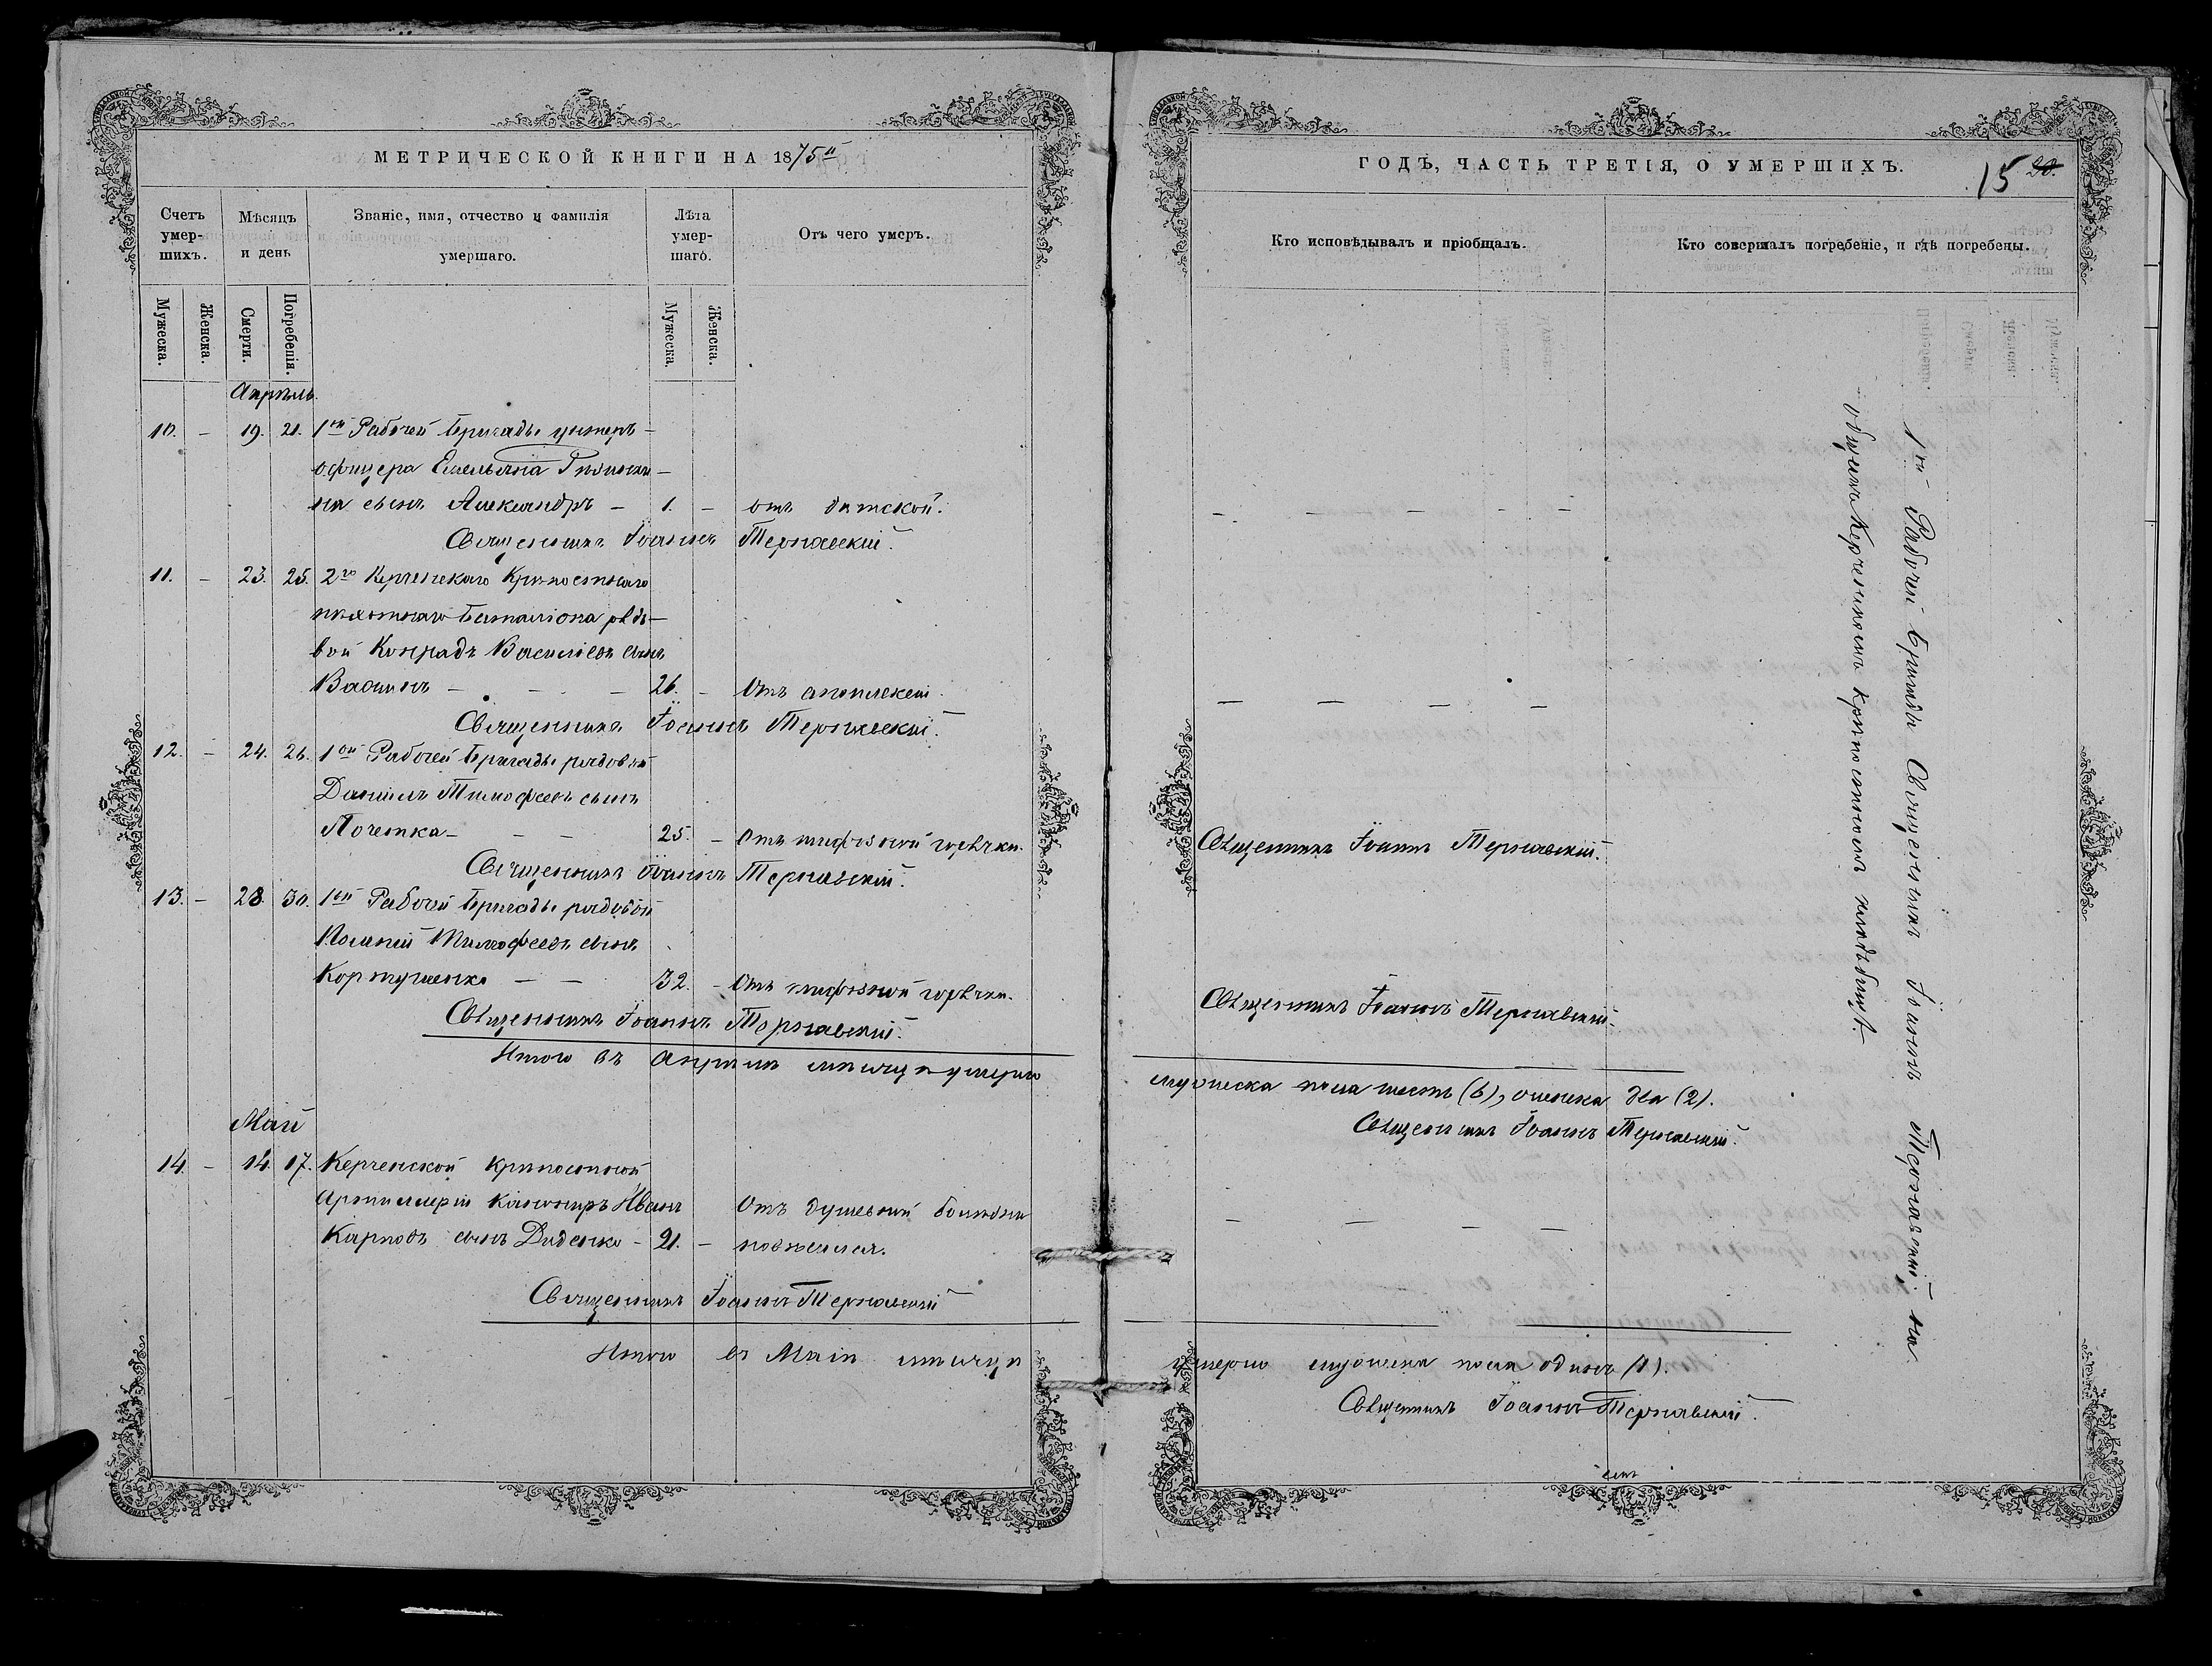 МЕТРИЧЕСКОЙ КНИГИ НА 1875й
Счетъ умер-шихъ.
Мѣсяцъ и день
Званіе, имя, отчество и фамилія умершаго.
Лѣта умер-шаго.
Отъ чего умеръ.
Мужеска.
Женска.
Смерти.
Погребенія.
Мужеска.
Женска.
Апрѣль.
10. – 19. 21. 1ой Рабочей бригады унтеръ–
офицера Емельяна
на сынъ Александръ – 1. – отъ дѣтской.
Священникъ Іоаннъ Тернавскій.
11. – 23. 25. 2го Керченскаго Крѣпостнаго
пѣхотнаго баталіона рядо–
вой Конрадъ Васильевъ сынъ
– – – 26. – Отъ апоплексіи.
Священникъ Іоаннъ Тернавскій.
12. – 24. 26. 1ой Рабочей бригады рядовой
Даніилъ Тимофеевъ сынъ
Почетка – – – 25. – Отъ тифозной горячки.
Священникъ Іоаннъ Тернавскій.
13. – 28. 30. 1ой Рабочей бригады рядовой
Тимофеевъ сынъ
– – 32. – Отъ тифозной горячки.
Священникъ Іоаннъ Тернавскій.
Итого въ Апрѣлѣ мѣсяцѣ умерло
Май
14. – 14. 17. Керченской крѣпостной
Артиллеріи канониръ Иванъ Отъ душевной болѣзни
Карповъ сынъ Диденко – 21. – повѣсился.
Священникъ Іоаннъ Тернавскій
Итого въ Маѣ мѣсяцѣ
ГОДЪ, ЧАСТЬ ТРЕТІЯ, О УМЕРШИХЪ.
15 20.
Кто исповѣдывалъ и пріобщалъ.
Кто совершалъ погребеніе, и гдѣ погребены.
– – – – –
– – – –
Священникъ Іоаннъ Тернавскій.
Священникъ Іоаннъ Тернавскій.
мужеска пола шесть (6), женска два (2).
Священникъ Іоаннъ Тернавскій.
– – – –
умерло мужеска пола одинъ (1).
Священникъ Іоаннъ Тернавскій.
1ой Рабочей бригады Священникъ Іоаннъ Тернавскій на
общемъ Керченскомъ крѣпостномъ кладбищѣ.